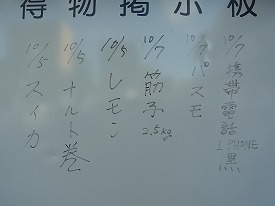 得物掲示板
10/7 携帯電話 I PHONE 黒
10/7 パスモ
10/7 筋子 2.5kg
10/5 レモン
10/5 ナルト巻
10/5 スイカ